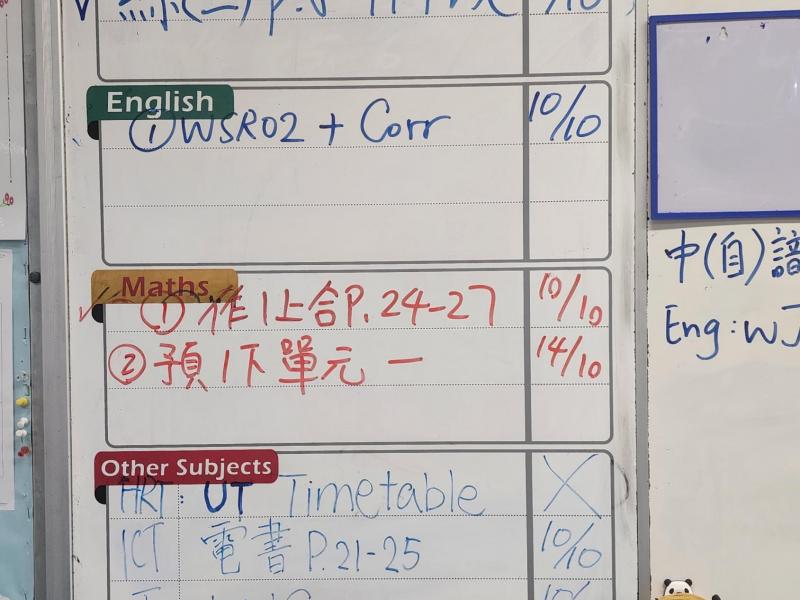 English
① WSR02 + Corr 10/10
Maths
① 作1上合P.24-27 10/10
② 預1下單元一 14/10
Other Subjects
HRT: UT Timetable X
ICT 電書 P.21-25 10/10
中(自)諳
Eng: WJ